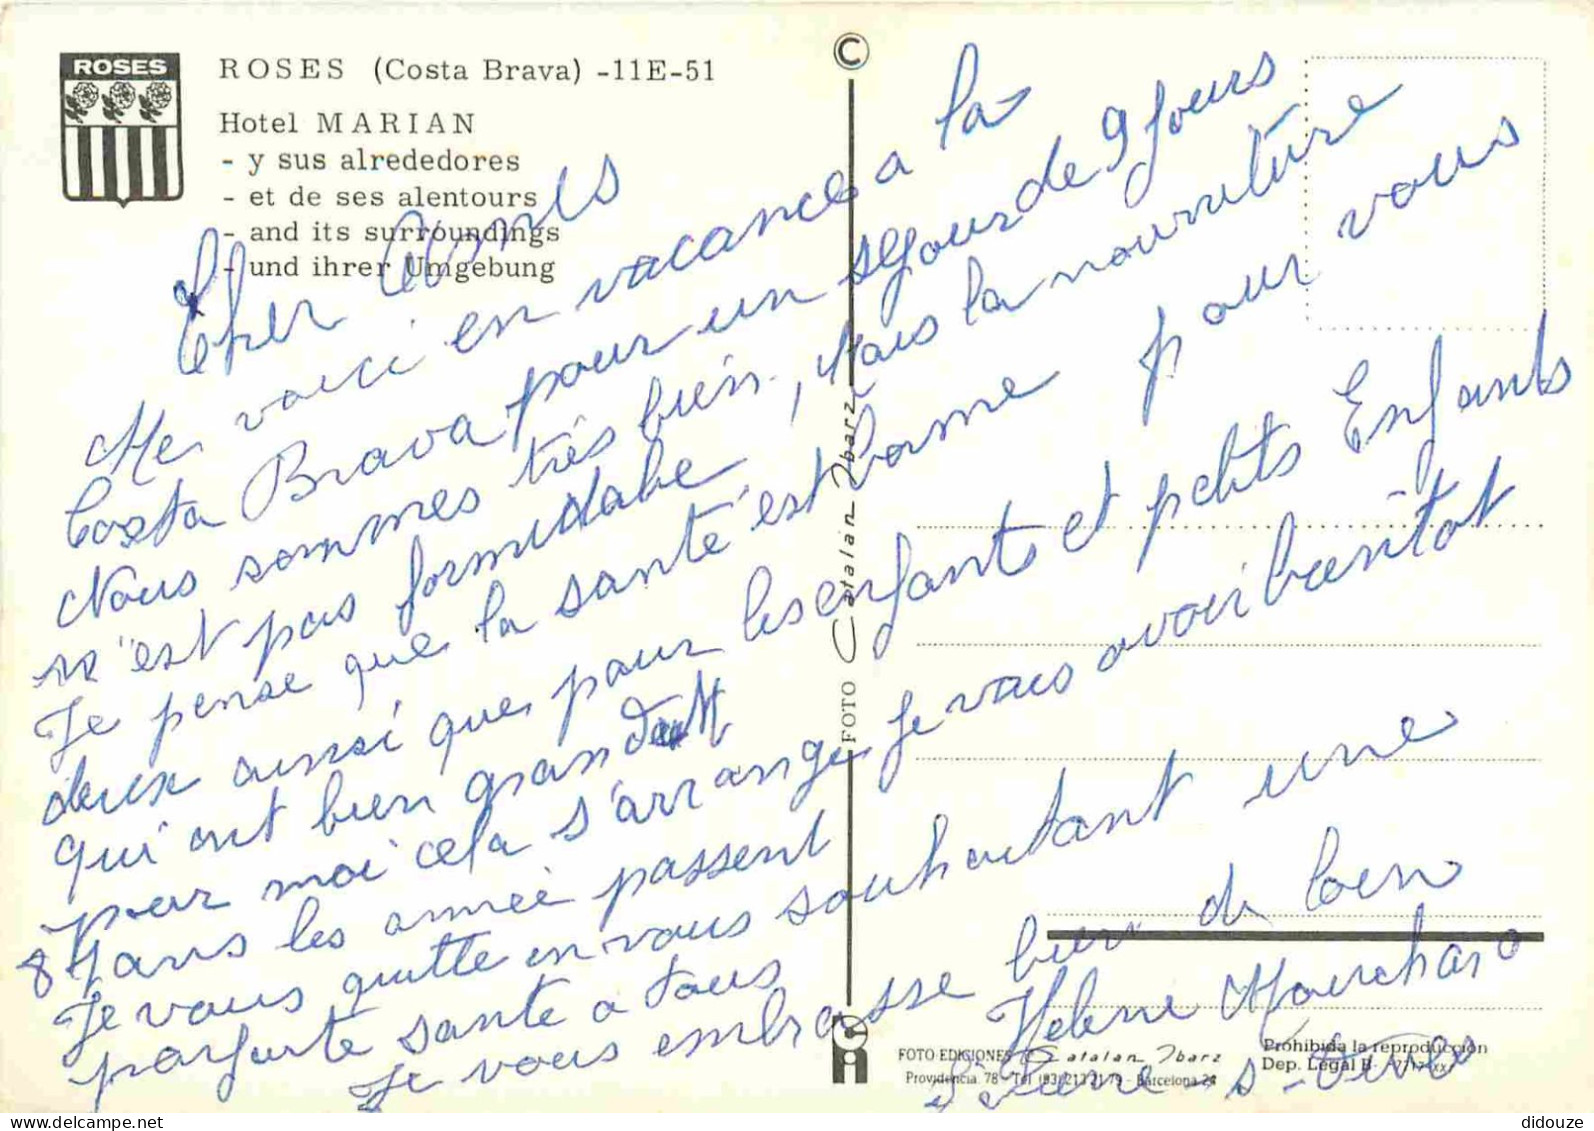 ROSES
ROSES (Costa Brava) -11E-51
Hotel MARIAN
- y sus alrededores
- et de ses alentours
- and its surroundings
- und ihrer Umgebung
Cher Amies
Me voici en vacance a la
Costa Brava pour un sejour de 9 jours
Nous sommes très bien, Mais la nourriture
n'est pas formidable
Je pense que la santé est bonne pour vous
deux aussi que pour les enfants et petits Enfants
qui ont bien grandit
pour moi cela s'arrange je vais avoir bientot
84 ans les année passent
Je vous quitte en vous souhaitant une
parfaite santé a tous
Je vous embrasse bien de loin
Helene
St Pierre-s-Dives
©
FOTO Catalan Ibarz
FOTO-EDICIONES Catalan Ibarz
Providencia, 78 - Tel (93) 213 21 79 - Barcelona-24
Prohibida la reproducción
Dep. Legal B.
didouze